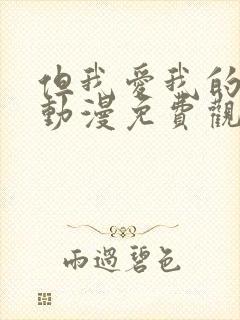 但我愛我的
動漫免費觀
雨過碧色